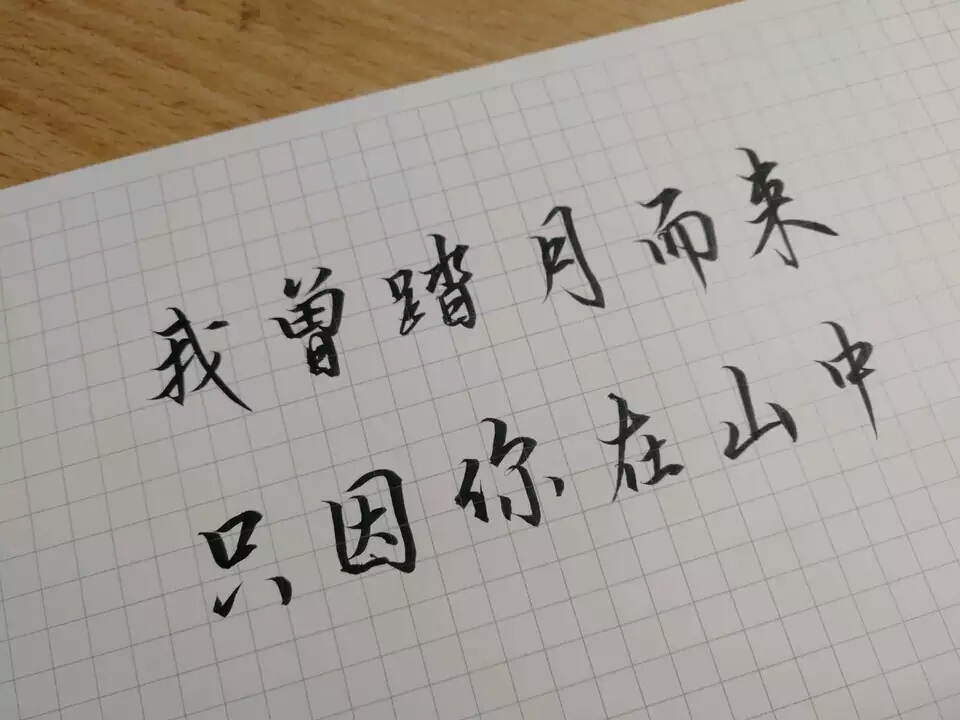 我曾踏月而来
只因你在山中